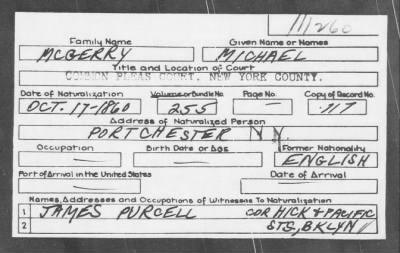 M260
Family Name Given Name or Names
MCGERRY MICHAEL
Title and Location of Court
COMMON PLEAS COURT, NEW YORK COUNTY.
Date of Naturalization Volume or Bundle No. Page No. Copy of Record No.
OCT. 17-1860 255 — 117
Address of Naturalized Person
PORTCHESTER N.Y.
Occupation Birth Date or Age Former Nationality
— — ENGLISH
Port of Arrival in the United States Date of Arrival
— —
Names, Addresses and Occupations of Witnesses To Naturalization
1 JAMES PURCELL COR HICK & PACIFIC
2 STS, BKLYN